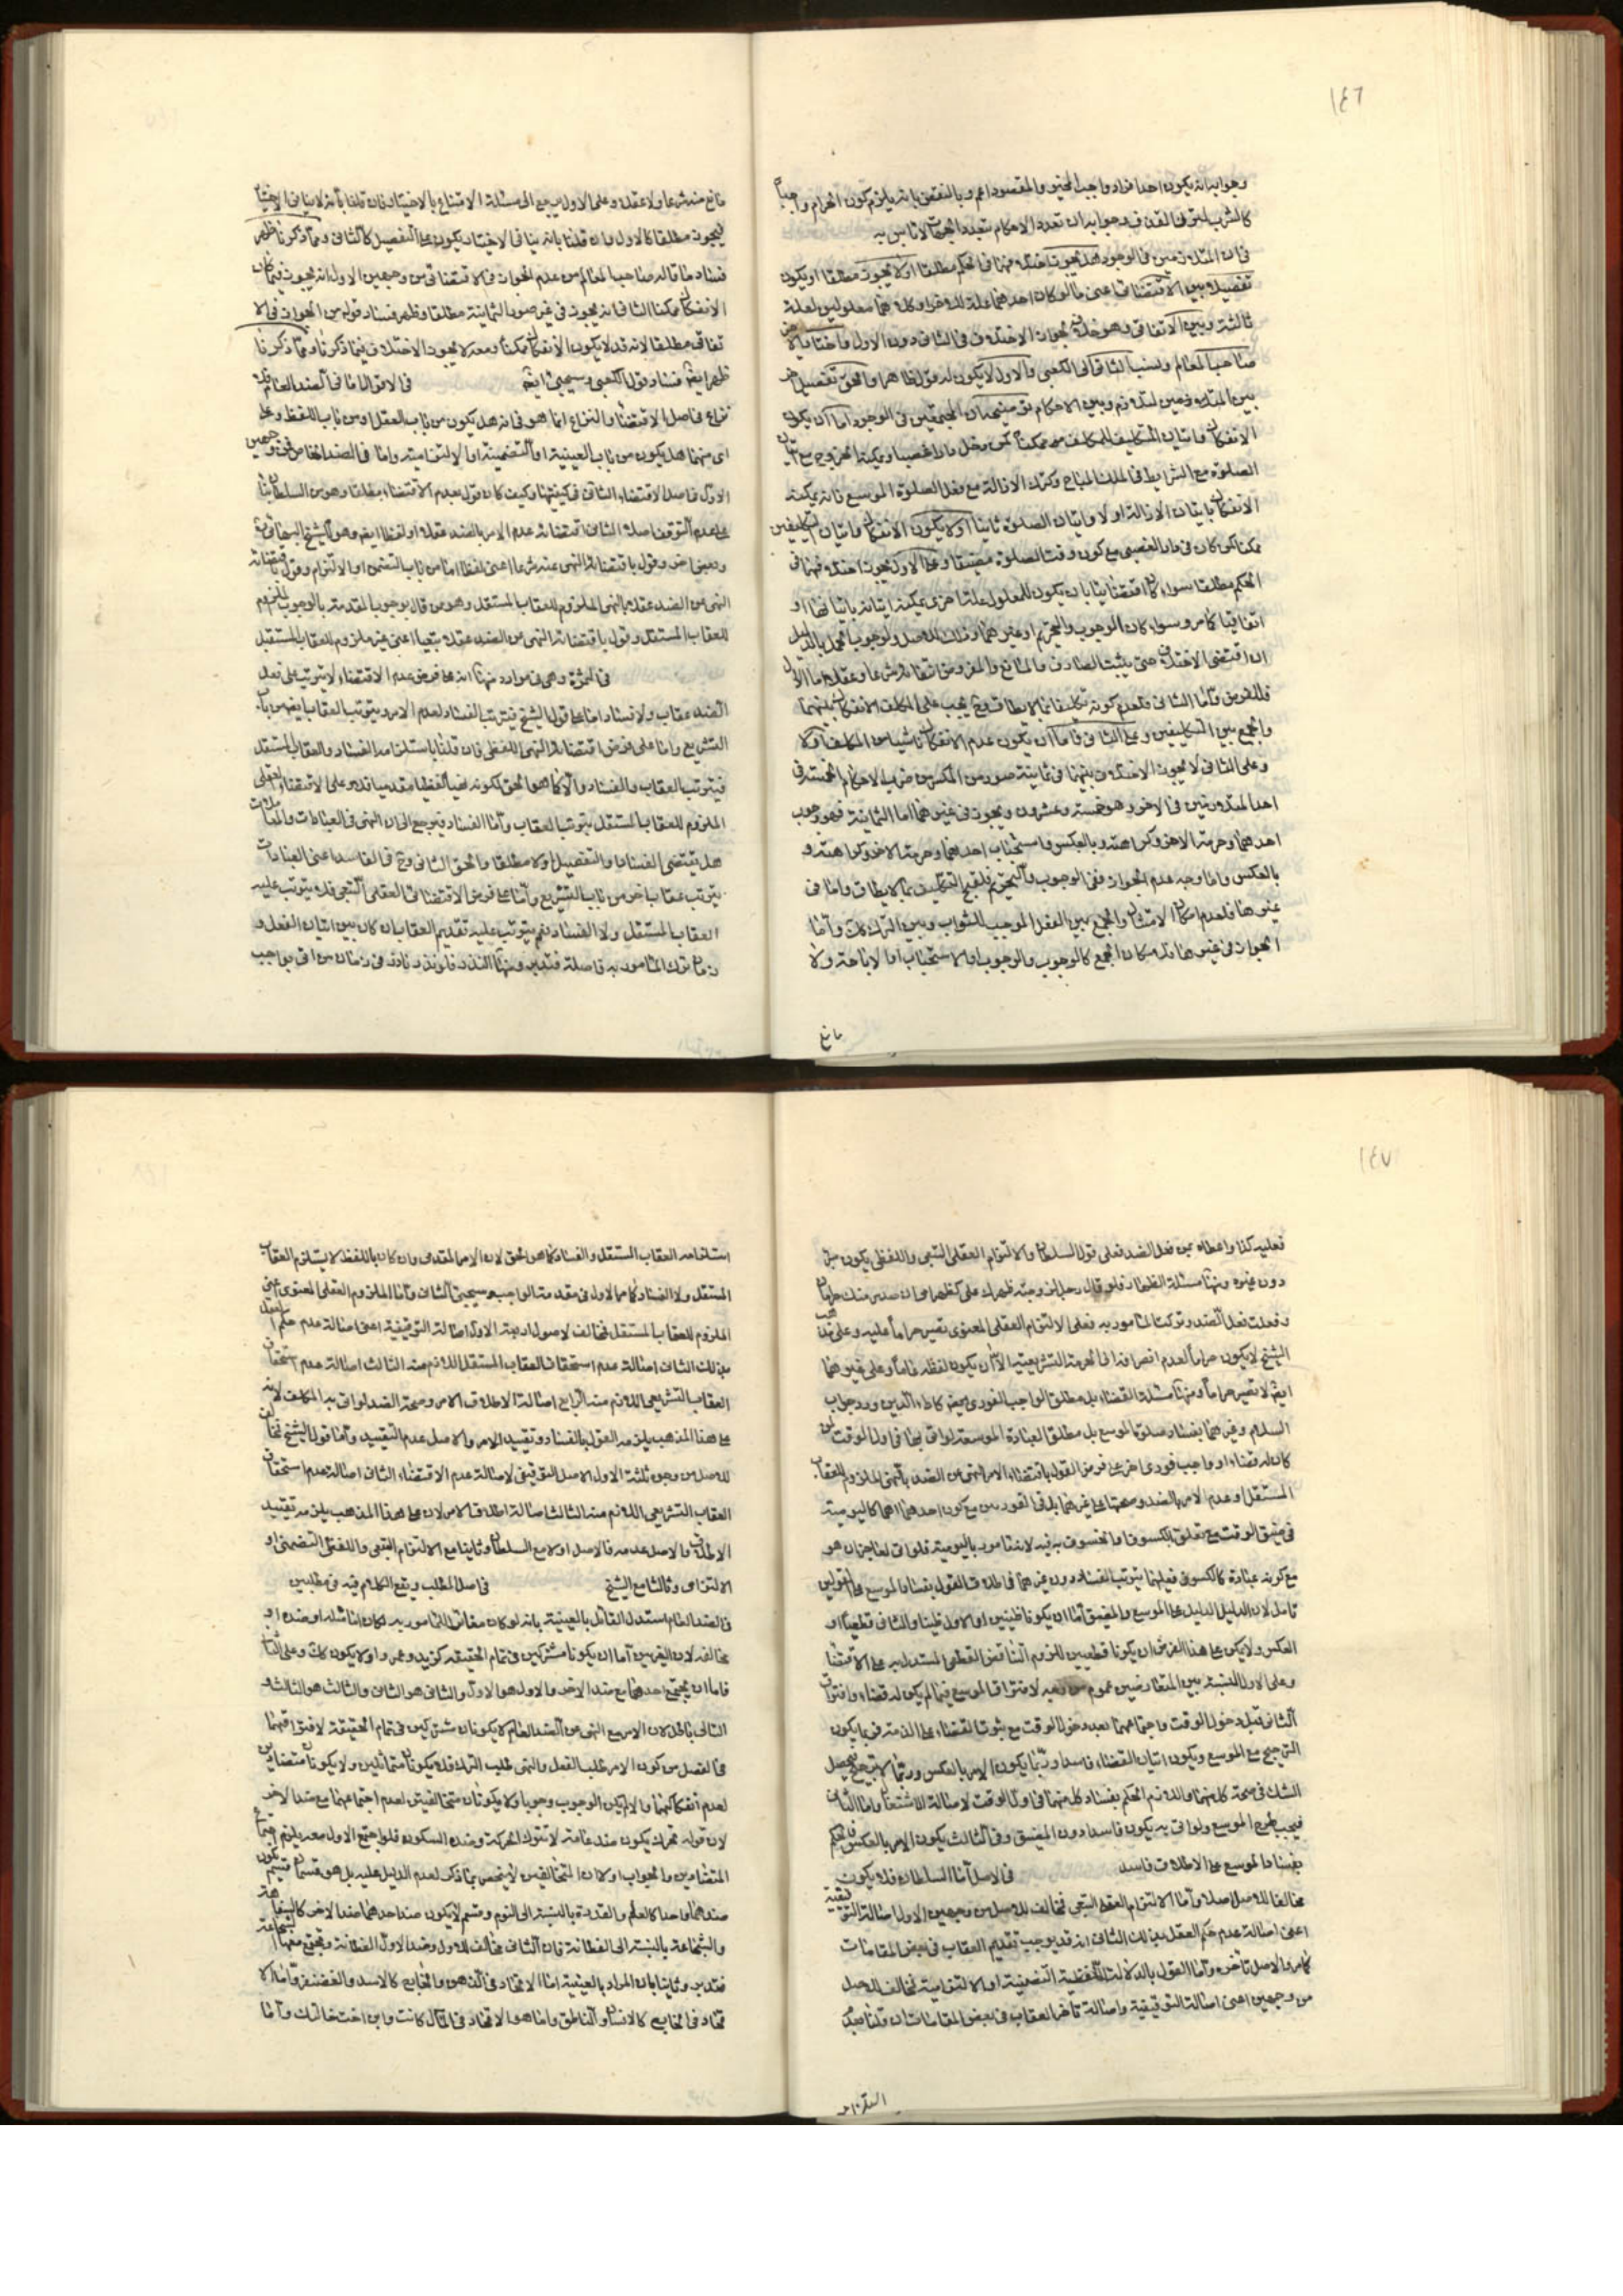 ١٤٦
وجوابه انه يكون احد افراد واجب المخير والمقصود اعم وبالنقض بانه يلزم كون الحرام واجبا
فى ان المتلازمين فى الوجود هل يجوز اختلافهما فى الحكم مطلقا او لا يجوز مطلقا او يكون
تفصيل بين الاقتضائى اعنى ما لو كان احدهما علة للاخر او كلاهما معلولين لعلة
ثالثة وبين الاتفاقى وهو خلاف يجوز الاختلاف فى الثانى دون الاول
صاحب المعالم ونسب الثانى الى الكعبى والاول لا يكون له قول ظاهرا والحق تفصيل اخر
الصلوة مع الشرايط فى الملك المباح وكترك الازالة مع فعل الصلوة الموسع فانه يمكنه
الانفكاك باتيان الازالة اولا واتيان الصلوة ثانيا او لا يكون الانفكاك واتيان التكليفين
ممكنا كمن كان فى دار الغصبى مع كون وقت الصلوة مضيقا وعلى الاول يجوز اختلافهما فى
والجمع بين التكليفين وعلى الثانى فاما ان يكون عدم الانفكاك ناشيا من المكلف او لا
وعلى الثانى لا يجوز الاختلاف بينهما فى ثمانية صور من المكسرين ضرب الاحكام الخمسة فى
احد المتلازمين فى الاخر وهو خمسة وعشرون ويجوز فى غيرهما اما الثمانية فهو وجوب
احدهما وحرمة الاخر وكراهته وبالعكس واستحباب احدهما وحرمة الاخر وكراهته و
بالعكس واما وجه عدم الجواز ففى الوجوب والتحريم فلقبح التكليف بما لا يطاق واما فى
غيرها فلعدم امكان الامتثال والجمع بين الفعل الموجب للثواب وبين الترك كك واما
الجواز فى غيرها فلامكان الجمع كالوجوب والوجوب او الاستحباب او الاباحة ولا
مانع
مانع منه شرعا ولا عقلا وعلى الاول يرجع الى مسئلة الامتناع بالاختيار فان قلنا بانه لا ينافى الاختيار
فيجوز مطلقا كالاول وان قلنا بانه ينافى الاختيار يكون على التفصيل كالثانى ومما ذكرنا ظهر
فساد ما قاله صاحب المعالم من عدم الجواز فى الاقتضائى من وجهين الاول انه يجوز فيما كان
الانفكاك ممكنا الثانى انه يجوز فى غير صور الثمانية مطلقا وظهر فساد قوله من الجواز فى الا
تفاقى مطلقا لانه قد لا يكون الانفكاك ممكنا ومعه لا يجوز الاختلاف فيما ذكرنا ومما ذكرنا
ظهر ايضا فساد قول الكعبى وسيجيئ ايضا فى الاقوال اما فى الضد العام فلا
نزاع فى اصل الاقتضاء والنزاع انما هو فى انه هل يكون من باب العقل او من باب اللفظ وعلى
اى منهما هل يكون من باب العينية او التضمنية او الالتزامية واما فى الضد الخاص ففى وجهين
الاول فى اصل الاقتضاء الثانى فى كيفيتها وكيف كان قول بعدم الاقتضاء مطلقا وهو من السلطان بناء
على عدم التوقف اصلا الثانى اقتضائه عدم الامر بالضد عقلا او لفظا ايضا وهو الشيخ البهائى
النهى عن الضد عقلا بالنهى الملزوم للعقاب المستقل وهو من قال بوجوب المقدمة بالوجوب الملزوم
للعقاب المستقل وقول باقتضائه النهى عن الضد عقلا تبعيا اعنى غير ملزوم للعقاب المستقل
فى الثمرة وهى فى موارد منها انه على فرض عدم الاقتضاء لا يترتب على فعل
الضد عقاب ولا فساد اما على قول الشيخ فيترتب الفساد لعدم الامر ويترتب العقاب ايضا من باب
التشريع واما على فرض اقتضائه النهى اللفظى فان قلنا باستلزامه الفساد والعقاب المستقل
الملزوم للعقاب المستقل يترتب العقاب واما الفساد فيرجع الى ان النهى فى العبادات والمعاملات
هل يقتضى الفساد او التفصيل او لا مطلقا والحق الثانى وح فى الفاسد اعنى العبادات
يترتب عقاب اخر من باب التشريع واما على فرض الاقتضائى العقلى التبعى فلا يترتب عليه
العقاب المستقل ولا الفساد نعم يترتب عليه تقديم العقاب ان كان بين اتيان الفعل و
زمان ترك المامور به فاصلة فتدبر ومنها النذر فلو نذر ناذر فى زمان من اتى بواجب
١٤٧
فعليه كذا واعطاه عن فعل الضد فعلى قول السلطان والالتزام العقلى التبعى واللفظى يكون
دون غيره ومنها مسئلة الظهار فلو قال رجل لزوجته ظهرك على كظهر امى ان صدر منك حراما
وفعلت فعل الضد وتركت المامور به فعلى الالتزام العقلى المعنوى تصير حراما عليه وعلى مذهب
الشيخ لا يكون حراما لعدم انصرافه الى الحرمة التشريعية الا ان يكون لفظه عاما وعلى غيرهما
ايضا لا تصير حراما ومنها مسئلة القضاء بل مطلق الواجب الفورى كاداء الدين ورد جواب
السلام وغيرهما بفساد صلوة الموسع بل مطلق العبادة الموسعة لو اتى بها فى اول الوقت لمن
كان له قضاء او واجب فورى اخر على فرض القول باقتضاء الامر النهى عن الضد بالنهى الملزوم للعقاب
المستقل او عدم الامر بالضد وصحتها على غيرهما بل فى الفوريين مع كون احدهما اهم كاليومية
فى ضيق الوقت مع تعلق الكسوف او الخسوف به فيه لانه مامور باليومية فلو اتى
مع كونه عبادة كالكسوف فعليهما يترتب الفساد دون غيرهما فاطلاق القول بفساد الموسع على القولين
تامل لان الدليل الدليل على الموسع والمضيق اما ان يكونا ظنيين او الاول ظنيا والثانى قطعيا او
العكس ولا يمكن على هذا الفرض ان يكونا قطعيين للزوم التناقض القطعى المستدل به على الاقتضاء
وعلى الاول النسبة بين المتعارضين عموم من وجه لافتراق الموسع فيما لم يكن له قضاء وافتراق
الثانى قبل دخول الوقت واجتماعهما بعد دخول الوقت مع ثبوت القضاء على الذمة فربما يكون
الترجيح مع الموسع ويكون اتيان القضاء فاسدا وربما يكون الامر بالعكس وربما لا ترجيح فيحصل
الشك فى صحة كل منهما واللازم الحكم بفساد كل منهما فى اول الوقت لاصالة الاشتغال واما الثانى
فيجب طرح الموسع ولو اتى به يكون فاسدا دون المضيق وفى الثالث يكون الامر بالعكس فالحكم
بفساد الموسع على الاطلاق فاسد فى الاصل اما السلطان فلا يكون
مخالفا للاصل اصلا واما الالتزام العقلى التبعى فمخالف للاصل من وجهين الاول اصالة التوقيفية
اعنى اصالة عدم حكم العقل بذلك الثانى انه قد يوجب تقديم العقاب فى بعض المقامات
كما مر والاصل تاخره واما القول بالدلالة اللفظية التضمنية او الالتزامية فمخالف للاصل
من وجهين اعنى اصالة التوقيفية واصالة تاخر العقاب فى بعض المقامات ان قلنا بعدم
استلزامه
استلزامه العقاب المستقل والفساد كما هو الحق لان الامر المقدمى وان كان باللفظ لا يستلزم العقاب
المستقل ولا الفساد كما مر الاول فى مقدمة الواجب وسيجيئ الثانى واما الملزوم العقلى المعنوى اعنى
الملزوم للعقاب المستقل فمخالف لاصول اربعة الاول اصالة التوقيفية اعنى اصالة عدم حكم العقل
بذلك الثانى اصالة عدم استحقاق العقاب المستقل اللازم منه الثالث اصالة عدم استحقاق
العقاب التشريعى اللازم منه الرابع اصالة الاطلاق الامر وصحة الضد لو اتى به المكلف لانه
على هذا المذهب يلزمه القول بالفساد وتقييد الامر والاصل عدم التقييد واما قول الشيخ فمخالف
للاصل من وجوه ثلثة الاول الاصل التوقيفى لاصالة عدم الاقتضاء الثانى اصالة عدم استحقاق
العقاب التشريعى اللازم منه الثالث اصالة اطلاق الامر لان على هذا المذهب يلزمه تقييد
الاطلاق والاصل عدمه فالاصل اولا مع السلطان وثانيا مع الالتزام التبعى واللفظى التضمنى او
الالتزامى وثالثا مع الشيخ فى اصل المطلب ويقع الكلام فيه فى مطلبين
فى الضد العام استدل القائل بالعينية بانه لو كان مغائرا للمامور به لكان اما مثله او ضده او
مخالفه لان الغيرين اما ان يكونا مشتركين فى تمام الحقيقة كزيد وعمرو او لا يكون كك وعلى الثانى
فاما ان يجتمع احدهما مع ضد الاخر والاول هو الاول والثانى هو الثانى والثالث هو الثالث و
التالى باطل لان الامر مع النهى عن الضد العام لا يكونان مشتركين فى تمام الحقيقة لافتراقهما
فى الفصل من كون الامر طلب الفعل والنهى طلب الترك فلا يكونا متماثلين ولا يكونا متضادين
لعدم انفكاكهما والا لم يكن الوجوب وجوبا ولا يكونان متخالفين لعدم اجتماعهما مع ضد الاخر
لان قوله تحرك يكون ضد عامه لا تترك الحركة وضده السكون فلو اجتمع الاول معه يلزم اجتماع
المتضادين والجواب اولا ان المتخالفين لا ينحصر بما ذكر لعدم الدليل عليه بل هو قسمان قسم يكون
ضدهما واحدا كالعلم والقدرة بالنسبة الى النوم وقسم لا يكون ضد احدهما ضد الاخر
والشجاعة بالنسبة الى الفطانة فان الثانى مخالف للاول وضد الاول الفطانة وتجتمع معها
فتدبر وثانيا بان المراد بالعينية اما الاتحاد فى الذهن والخارج كالاسد والغضنفر واما الا
تحاد فى الخارج كالانسان والناطق واما هو الاتحاد فى المآل كانت وابن اخت خالتك واما